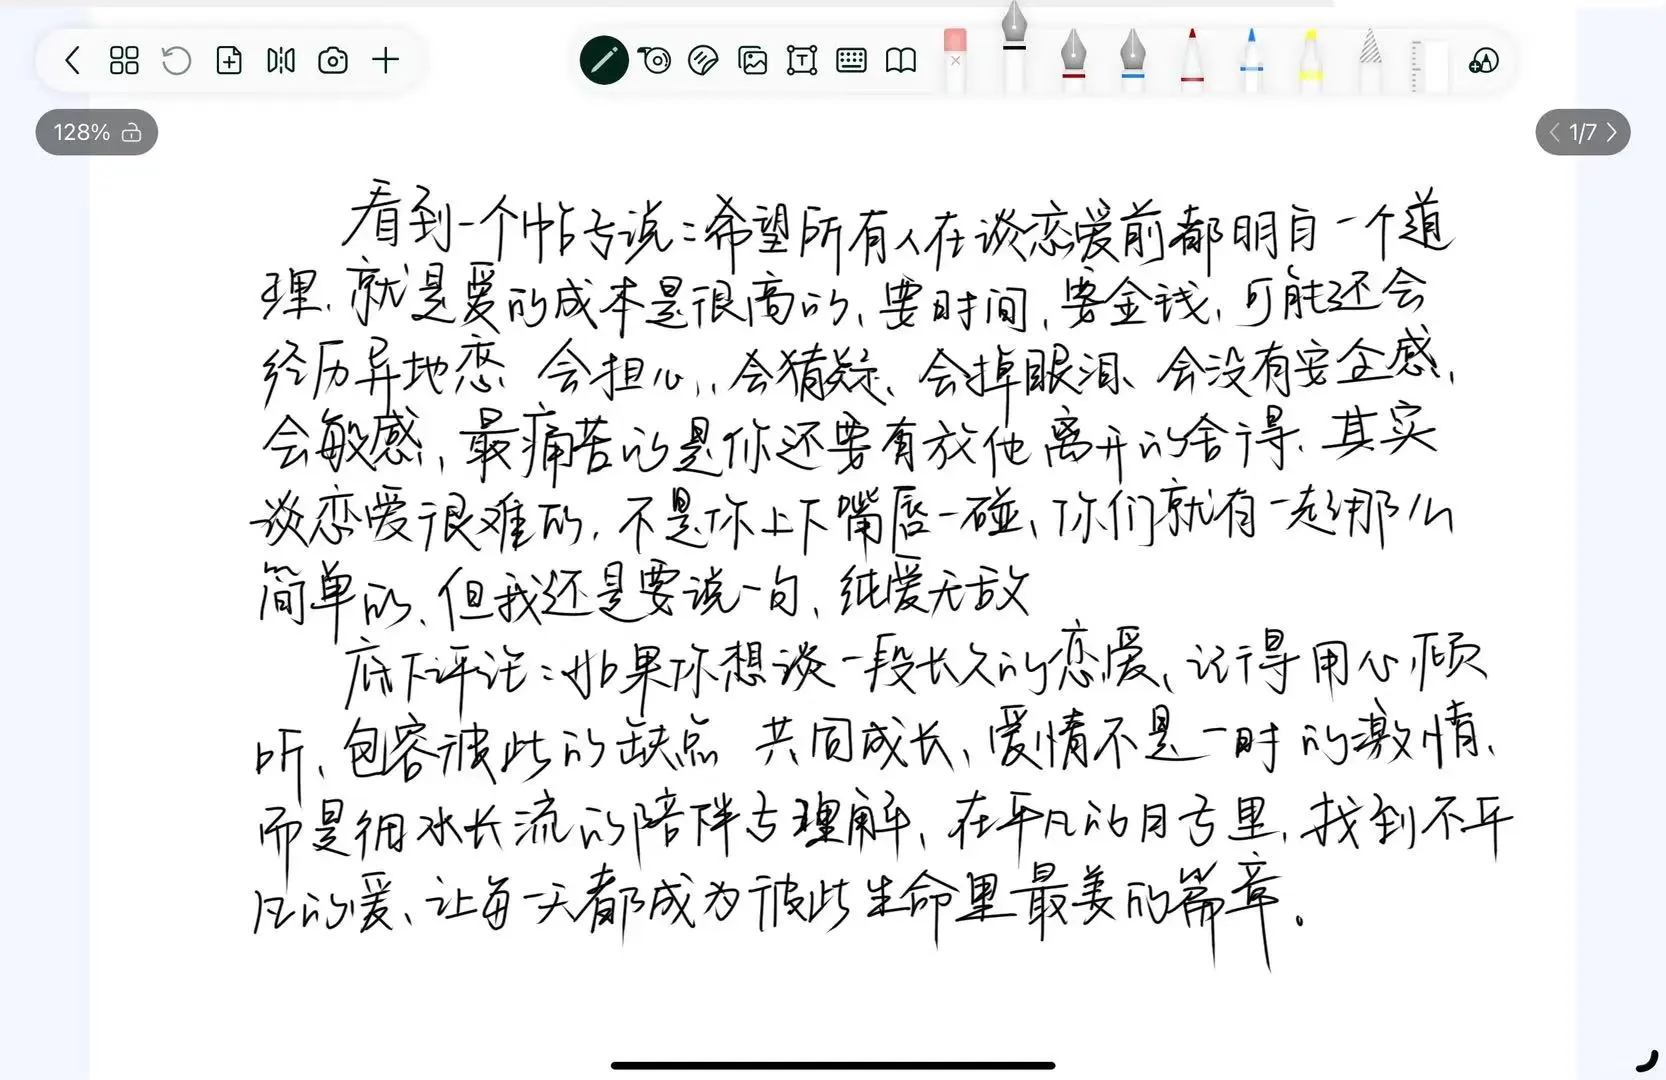 128%
1/7
看到一个帖子说:希望所有人在谈恋爱前都明白一个道
理,就是爱的成本是很高的,要时间,要金钱,可能还会
经历异地恋、会担心,会猜疑、会掉眼泪、会没有安全感,
会敏感,最痛苦的是你还要有放他离开的舍得,其实
谈恋爱很难的,不是你上下嘴唇一碰、你们就有一起那么
简单的、但我还是要说一句,纯爱无敌
底下评论:如果你想谈一段长久的恋爱、记得用心倾
听、包容彼此的缺点 共同成长、爱情不是一时的激情、
而是细水长流的陪伴与理解、在平凡的日子里,找到不平
凡的爱、让每一天都成为彼此生命里最美的篇章。